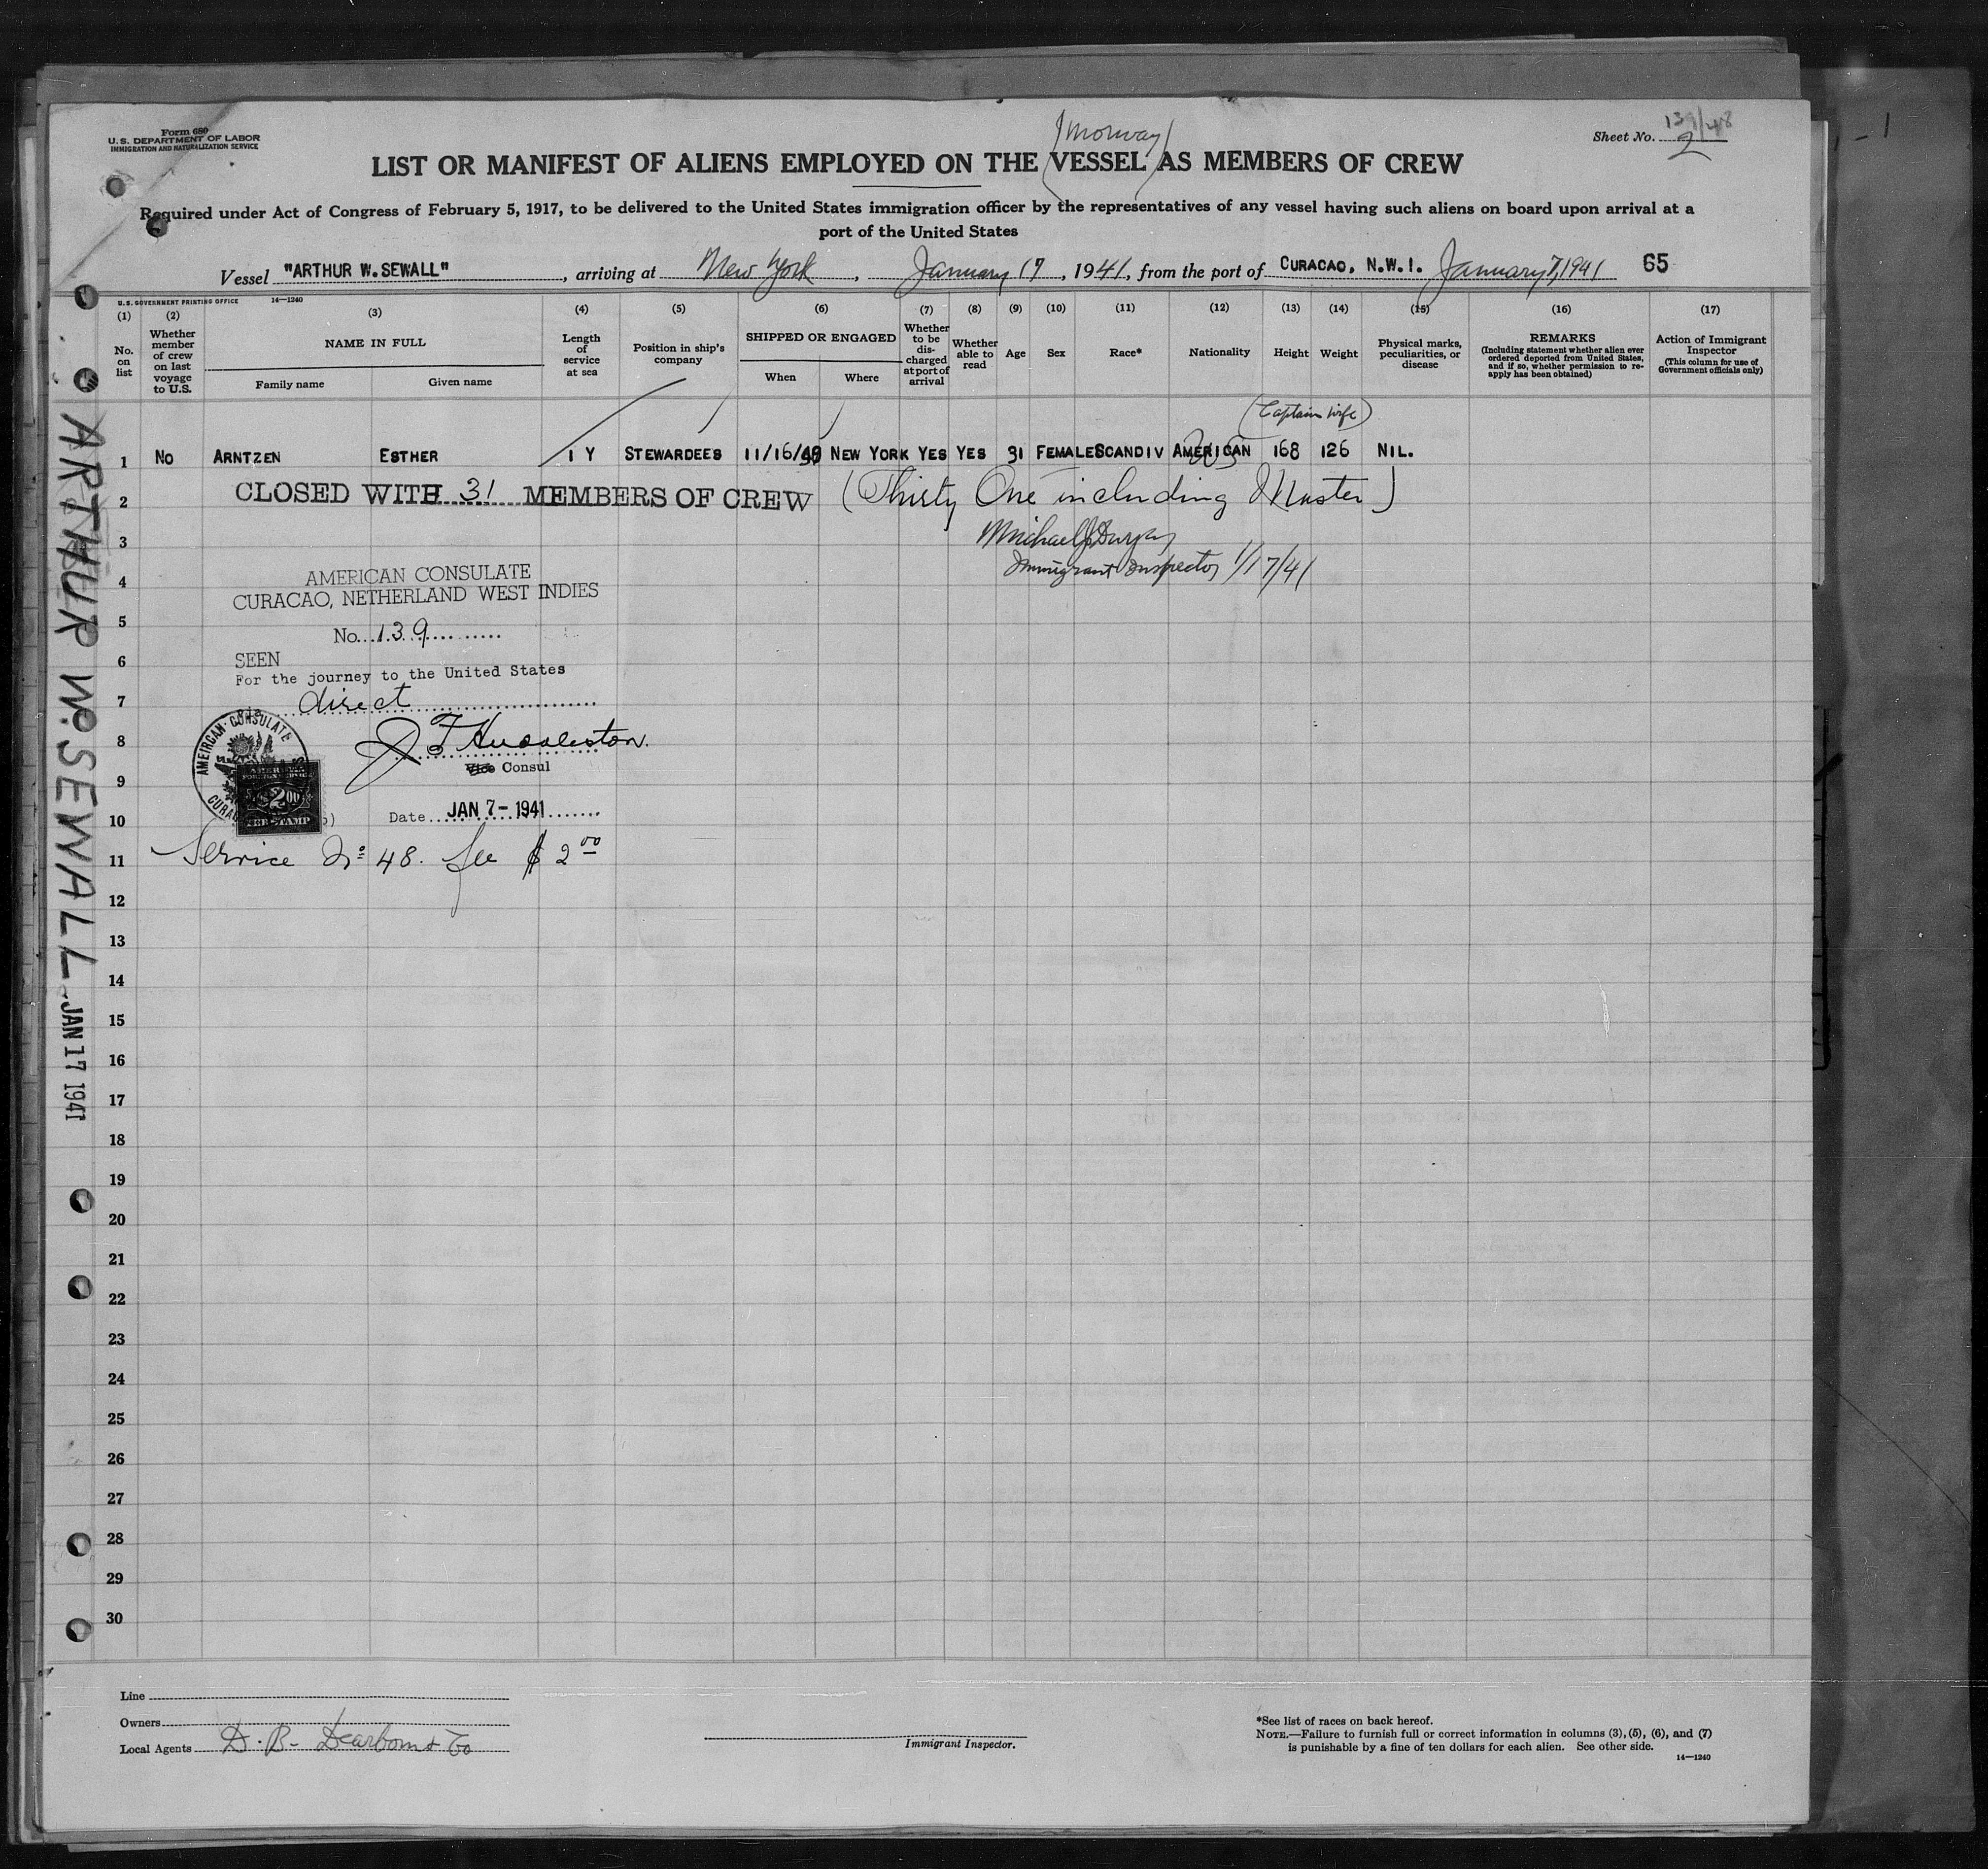 Form 680
U.S. DEPARTMENT OF LABOR
IMMIGRATION AND NATURALIZATION SERVICE
Sheet No. 2
139/48
(Norway)
LIST OR MANIFEST OF ALIENS EMPLOYED ON THE VESSEL AS MEMBERS OF CREW
Required under Act of Congress of February 5, 1917, to be delivered to the United States immigration officer by the representatives of any vessel having such aliens on board upon arrival at a
port of the United States
Vessel "ARTHUR W. SEWALL", arriving at New York, January 17, 1941, from the port of CURACAO, N.W.I. January 7, 1941 65
U.S. GOVERNMENT PRINTING OFFICE 14—1240
(1) No. on list
(2) Whether member of crew on last voyage to U.S.
(3) NAME IN FULL Family name Given name
(4) Length of service at sea
(5) Position in ship's company
(6) SHIPPED OR ENGAGED When Where
(7) Whether to be discharged at port of arrival
(8) Whether able to read
(9) Age
(10) Sex
(11) Race*
(12) Nationality
(13) Height
(14) Weight
(15) Physical marks, peculiarities, or disease
(16) REMARKS (Including statement whether alien ever ordered deported from United States, and if so, whether permission to reapply has been obtained)
(17) Action of Immigrant Inspector (This column for use of Government officials only)
(Captain wife)
1 NO ARNTZEN ESTHER 1 Y STEWARDEES 11/16/40 NEW YORK YES YES 31 FEMALE SCANDIV AMERICAN 168 126 NIL.
2 CLOSED WITH 31 MEMBERS OF CREW (Thirty One including Master)
3
Immigrant Inspector 1/17/41
4 AMERICAN CONSULATE
CURACAO, NETHERLAND WEST INDIES
5 No. 139
6 SEEN
For the journey to the United States
7 direct
8 J F Huddleston.
Vice Consul
9
10 Date JAN 7-1941
AMERICAN CONSULATE
AMERICAN FOREIGN SERVICE
2.00
FEE STAMP
11 Service No 48. fee $ 2 00
12
13
14
15
16
17
18
19
20
21
22
23
24
25
26
27
28
29
30
ARTHUR W. SEWALL JAN 17 1941
Line
Owners
Local Agents D. B. Dearborn & Co
Immigrant Inspector.
*See list of races on back hereof.
NOTE.—Failure to furnish full or correct information in columns (3), (5), (6), and (7)
is punishable by a fine of ten dollars for each alien. See other side.
14—1240